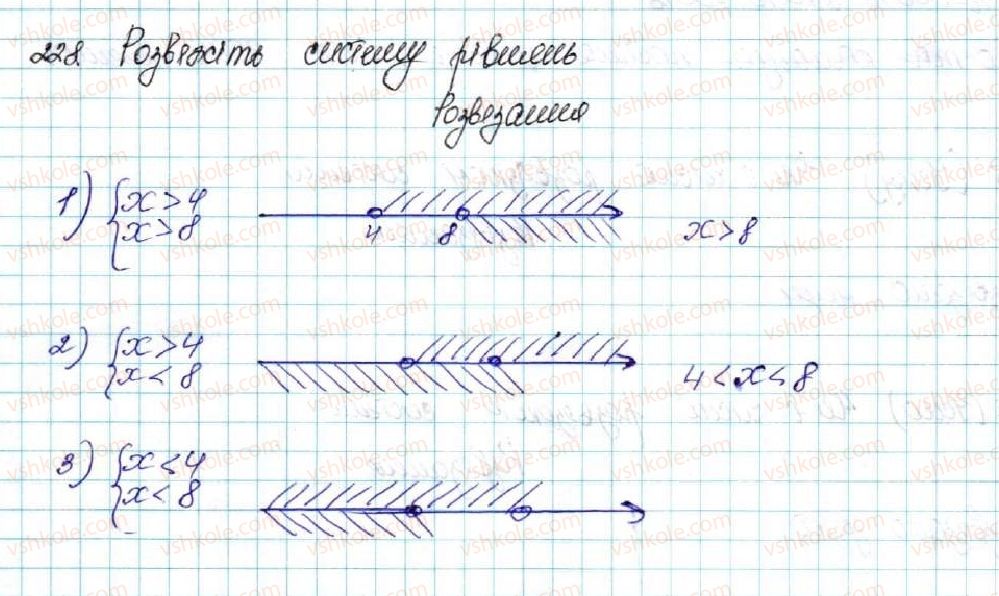 228 Розвяжіть систему рівнянь
Розвезання
1) { x > 4
{ x > 8
4 8
x > 8
2) { x > 4
{ x < 8
4 < x < 8
3) { x < 4
{ x < 8